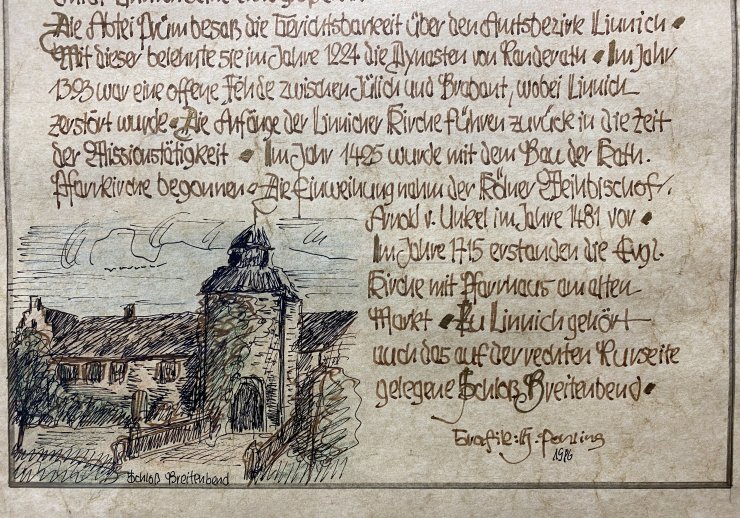 Die Abtei Prüm besaß die Gerichtsbarkeit über den Amtsbezirk Linnich •
Mit dieser belehnte sie im Jahre 1224 die Dynasten von Randerath • Im Jahr
1393 war eine offene Fehde zwischen Jülich und Brabant, wobei Linnich
zerstört wurde • Die Anfänge der Linnicher Kirche führen zurück in die Zeit
der Missionstätigkeit • Im Jahr 1425 wurde mit dem Bau der Kath.
Pfarrkirche begonnen • Die Einweihung nahm der Kölner Weihbischof
Arnold v. Unkel im Jahre 1481 vor •
Im Jahre 1715 erstanden die Evgl.
Kirche mit Pfarrhaus am alten
Markt • Zu Linnich gehört
auch das auf der rechten Rurseite
gelegene Schloß Breitenbend •
Grafik:
1986
Schloß Breitenbend